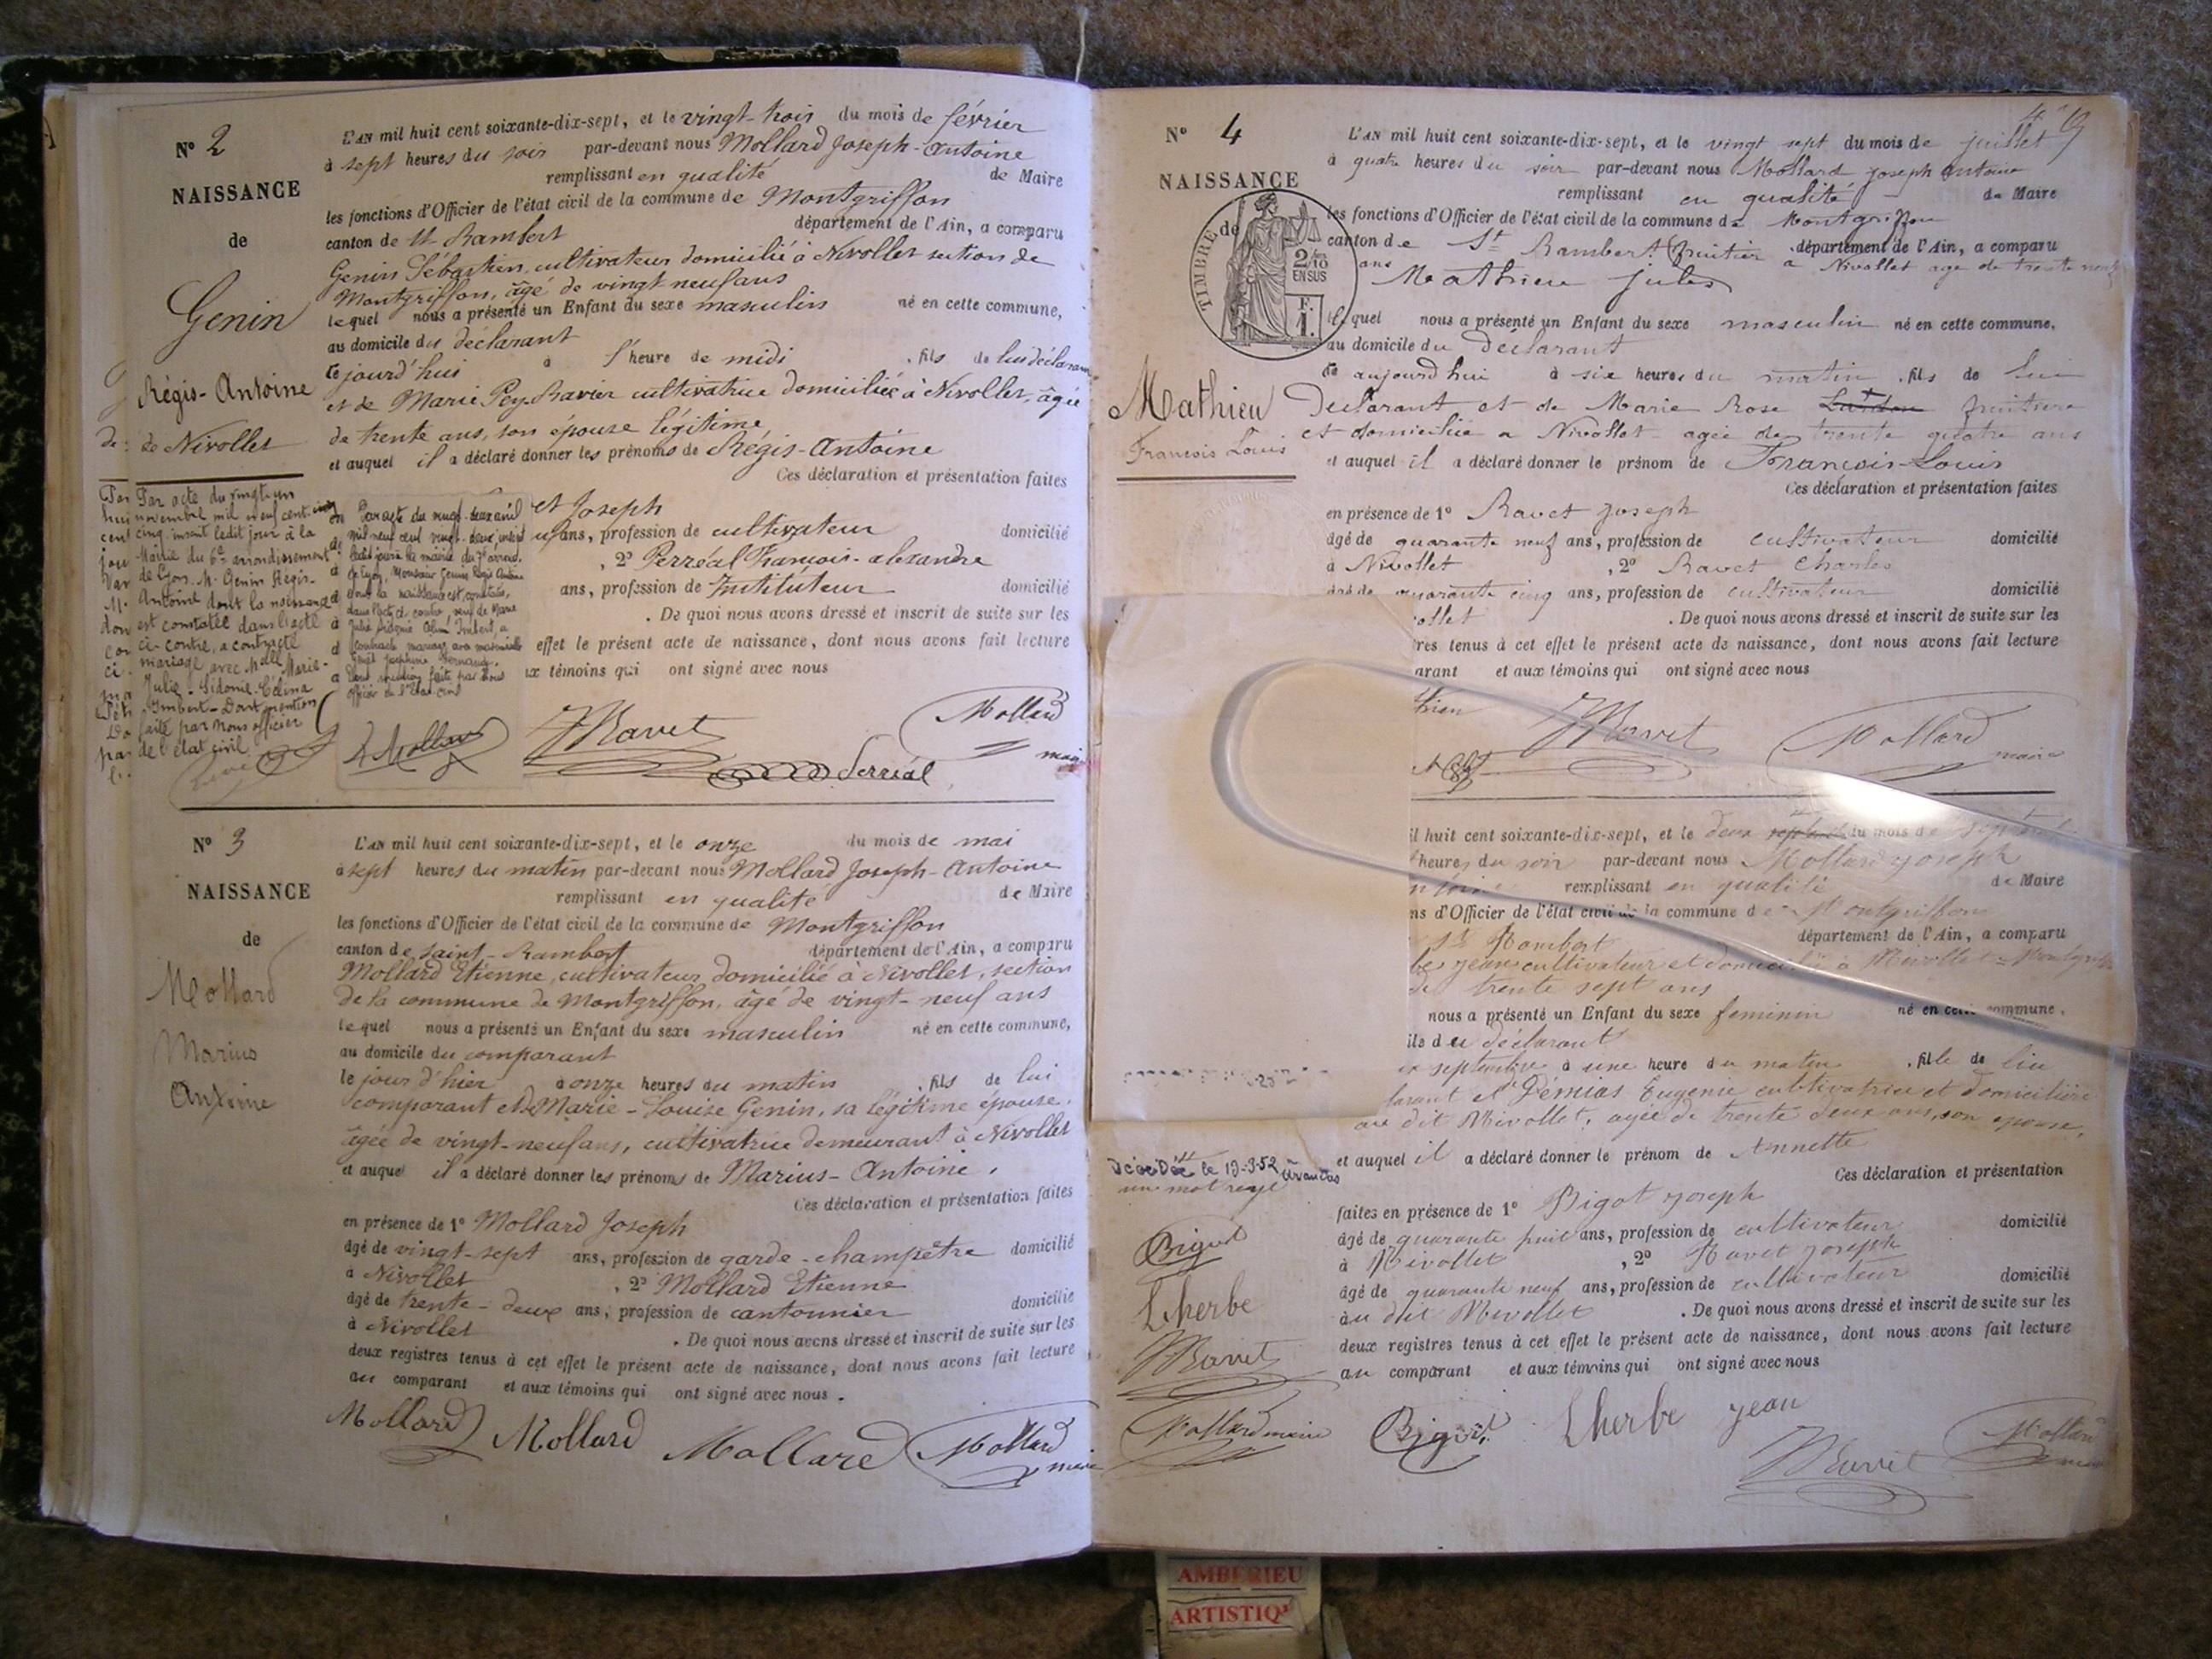 N° 2
NAISSANCE
de
Genin
Régis-Antoine
de Nivollet
L'AN mil huit cent soixante-dix-sept, et le vingt-trois du mois de février
à sept heures du soir par-devant nous Mollard Joseph-Antoine
remplissant en qualité de Maire
les fonctions d'Officier de l'état civil de la commune de Montgriffon
canton de St Rambert département de l'Ain, a comparu
Genin Sébastien, cultivateur domicilié à Nivollet section de
Montgriffon, âgé de vingt neuf ans
lequel nous a présenté un Enfant du sexe masculin né en cette commune,
au domicile du déclarant
le jourd'hui à l'heure de midi fils de lui déclarant
et de Marie Pey-Ravier cultivatrice domiciliée à Nivollet, âgée
de trente ans, son épouse légitime,
et auquel il a déclaré donner les prénoms de Régis-Antoine
Ces déclaration et présentation faites
et Joseph
ans, profession de cultivateur domicilié
, 2° Perréal François-alexandre
ans, profession de Instituteur domicilié
. De quoi nous avons dressé et inscrit de suite sur les
effet le présent acte de naissance, dont nous avons fait lecture
ux témoins qui ont signé avec nous
Par acte du vingt-un
novembre mil neuf cent cinq
inscrit ledit jour à la
Mairie du 6e arrondissement
de Lyon. M. Genin Régis-
Antoine dont la naissance
est constatée dans l'acte
ci-contre, a contracté
mariage avec Mdll Marie-
Julie-Sidonie-Célina
Imbert-Dont mention
faite par nous officier
de l'état civil
Par acte du vingt-deux avril
mil neuf cent vingt-deux, inscrit
ledit jour à la mairie du 7e arrond.
de Lyon, Monsieur Genin Régis Antoine
dont la naissance est constatée,
dans l'acte ci-contre, veuf de Marie
Julie Sidonie Imbert, a
contracté mariage avec
Dont mention faite par nous
officier de l'Etat-civil
Mollard
JRavet
Perréal
Mollard
maire
N° 3
NAISSANCE
de
Mollard
Marius
Antoine
L'AN mil huit cent soixante-dix-sept, et le onze du mois de mai
à sept heures du matin par-devant nous Mollard Joseph-Antoine
remplissant en qualité de Maire
les fonctions d'Officier de l'état civil de la commune de Montgriffon
canton de Saint-Rambert département de l'Ain, a comparu
Mollard Etienne, cultivateur, domicilié à Nivollet, section
de la commune de Montgriffon, âgé de vingt-neuf ans
lequel nous a présenté un Enfant du sexe masculin né en cette commune,
au domicile du comparant
le jour d'hier à onze heures du matin , fils de lui
comparant et de Marie-Louise Genin, sa légitime épouse,
âgée de vingt-neuf ans, cultivatrice demeurant à Nivollet
et auquel il a déclaré donner les prénoms de Marius-Antoine,
Ces déclaration et présentation faites
en présence de 1° Mollard Joseph
âgé de vingt-sept ans, profession de garde-champêtre domicilié
à Nivollet , 2° Mollard Etienne
âgé de trente-deux ans, profession de cantonnier domicilié
à Nivollet . De quoi nous avons dressé et inscrit de suite sur les
deux registres tenus à cet effet le présent acte de naissance, dont nous avons fait lecture
au comparant et aux témoins qui ont signé avec nous.
Mollard Mollard Mollard Mollard
maire
N° 4
NAISSANCE
de
TIMBRE
2/10
EN SUS
F.
1.
Mathieu
François Louis
L'AN mil huit cent soixante-dix-sept, et le vingt sept du mois de juillet
à quatre heures du soir par-devant nous Mollard joseph antoine
remplissant en qualité de Maire
les fonctions d'Officier de l'état civil de la commune de Montgriffon
canton de St Rambert fruitier département de l'Ain, a comparu
à Nivollet age de trente neuf
ans Mathieu jules
lequel nous a présenté un Enfant du sexe masculin né en cette commune,
au domicile du declarant
aujourd'hui à six heures du matin , fils de lui
declarant et de Marie Rose fruitiere
et domiciliée a Nivollet agée de trente quatre ans
et auquel il a déclaré donner le prénom de François-Louis
Ces déclaration et présentation faites
en présence de 1° Ravet joseph
âgé de quarante neuf ans, profession de cultivateur domicilié
à Nivollet , 2° Ravet Charles
âgé de quarante cinq ans, profession de cultivateur domicilié
ollet . De quoi nous avons dressé et inscrit de suite sur les
tres tenus à cet effet le présent acte de naissance, dont nous avons fait lecture
arant et aux témoins qui ont signé avec nous
JRavet
Mollard
maire
il huit cent soixante-dix-sept, et le deux du mois de septembre
heures du soir par-devant nous Mollard joseph
remplissant en qualité de Maire
ns d'Officier de l'état civil de la commune de Montgriffon
St Rambert département de l'Ain, a comparu
be jean cultivateur et domicilié à Nivollet Montgriffon
de trente sept ans
nous a présenté un Enfant du sexe feminin né en cette commune,
ile du déclarant
septembre à une heure du matin , fille de lui
larant et Eugenie cultivatrice et domiciliée
au dit Nivollet, agée de trente deux ans, son epouse,
et auquel il a déclaré donner le prénom de Annette
Ces déclaration et présentation
faites en présence de 1° Bigot joseph
âgé de quarante huit ans, profession de cultivateur domicilié
à Nivollet , 2° Ravet joseph
âgé de quarante neuf ans, profession de cultivateur domicilié
au dit Nivollet . De quoi nous avons dressé et inscrit de suite sur les
deux registres tenus à cet effet le présent acte de naissance, dont nous avons fait lecture
au comparant et aux témoins qui ont signé avec nous
Décédée le 19-3-52
un mot rayé
Bigot
Lherbe
JRavet
Mollard maire
Bigot Lherbe jean
JRavet
Mollard
AMBERIEU
ARTISTIQ